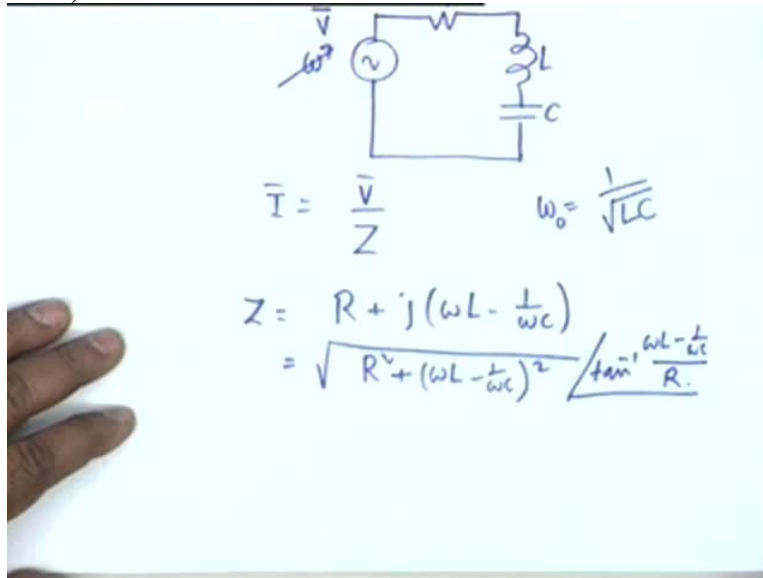 V̅
ω
~
L
C
I̅ = V̅ / Z
ω₀ = 1 / √LC
Z = R + j(ωL - 1/ωC)
= √R² + (ωL - 1/ωC)² ∠tan⁻¹ (ωL - 1/ωC) / R.